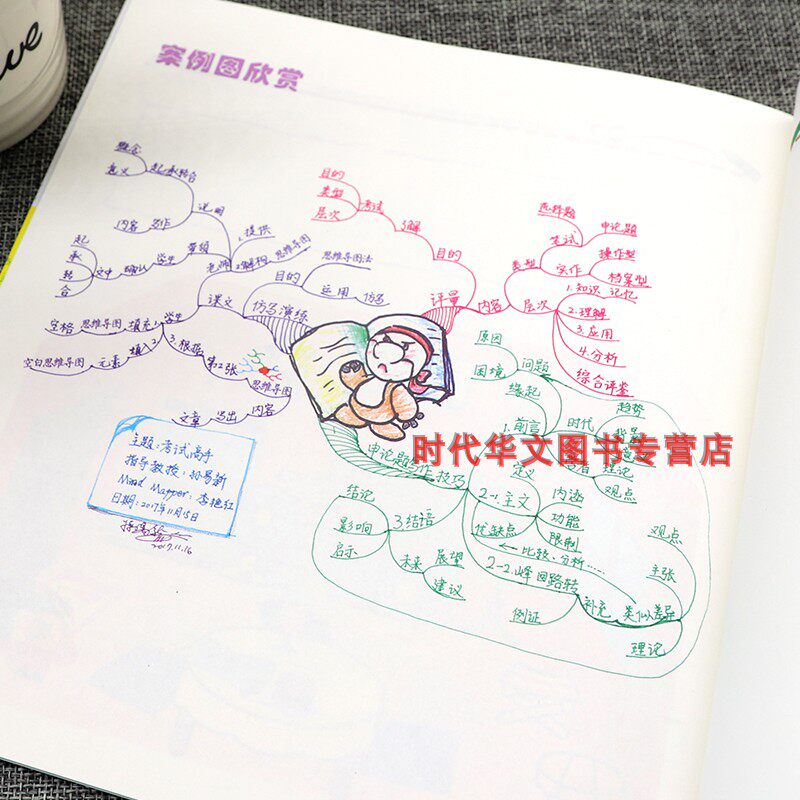 案例图欣赏
概念
意义
起承转合
内容
写作
说明
起
承
转
合
文中
确认
学生
带领
1.提供
2.解构
思维导图
老师
课文
目的
思维导图法
运用
仿写
仿写演练
空格
思维导图
填充1
学生
空白思维导图
元素
填入2
3.根据
第2张
思维导图
文章
写出
内容
目的
类型
层次
考试
了解
目的
评量
内容
类型
选择题
笔试
申论题
实作
操作型
档案型
层次
1.知识
记忆
2.理解
3.应用
4.分析
综合评鉴
原因
困境
问题
缘起
1.前言
时代
趋势
背景
理论
观点
申论题写作
技巧
定义
2-1.主文
内涵
功能
限制
优缺点
比较、分析……
2-2.峰回路转
例证
补充
类似差异
观点
主张
理论
结论
影响
启示
3.结语
未来
展望
建议
主题:考试高手
指导教授:孙易新
Mind Mapper:李艳红
日期:2017年11月15日
2017.11.16
时代华文图书专营店